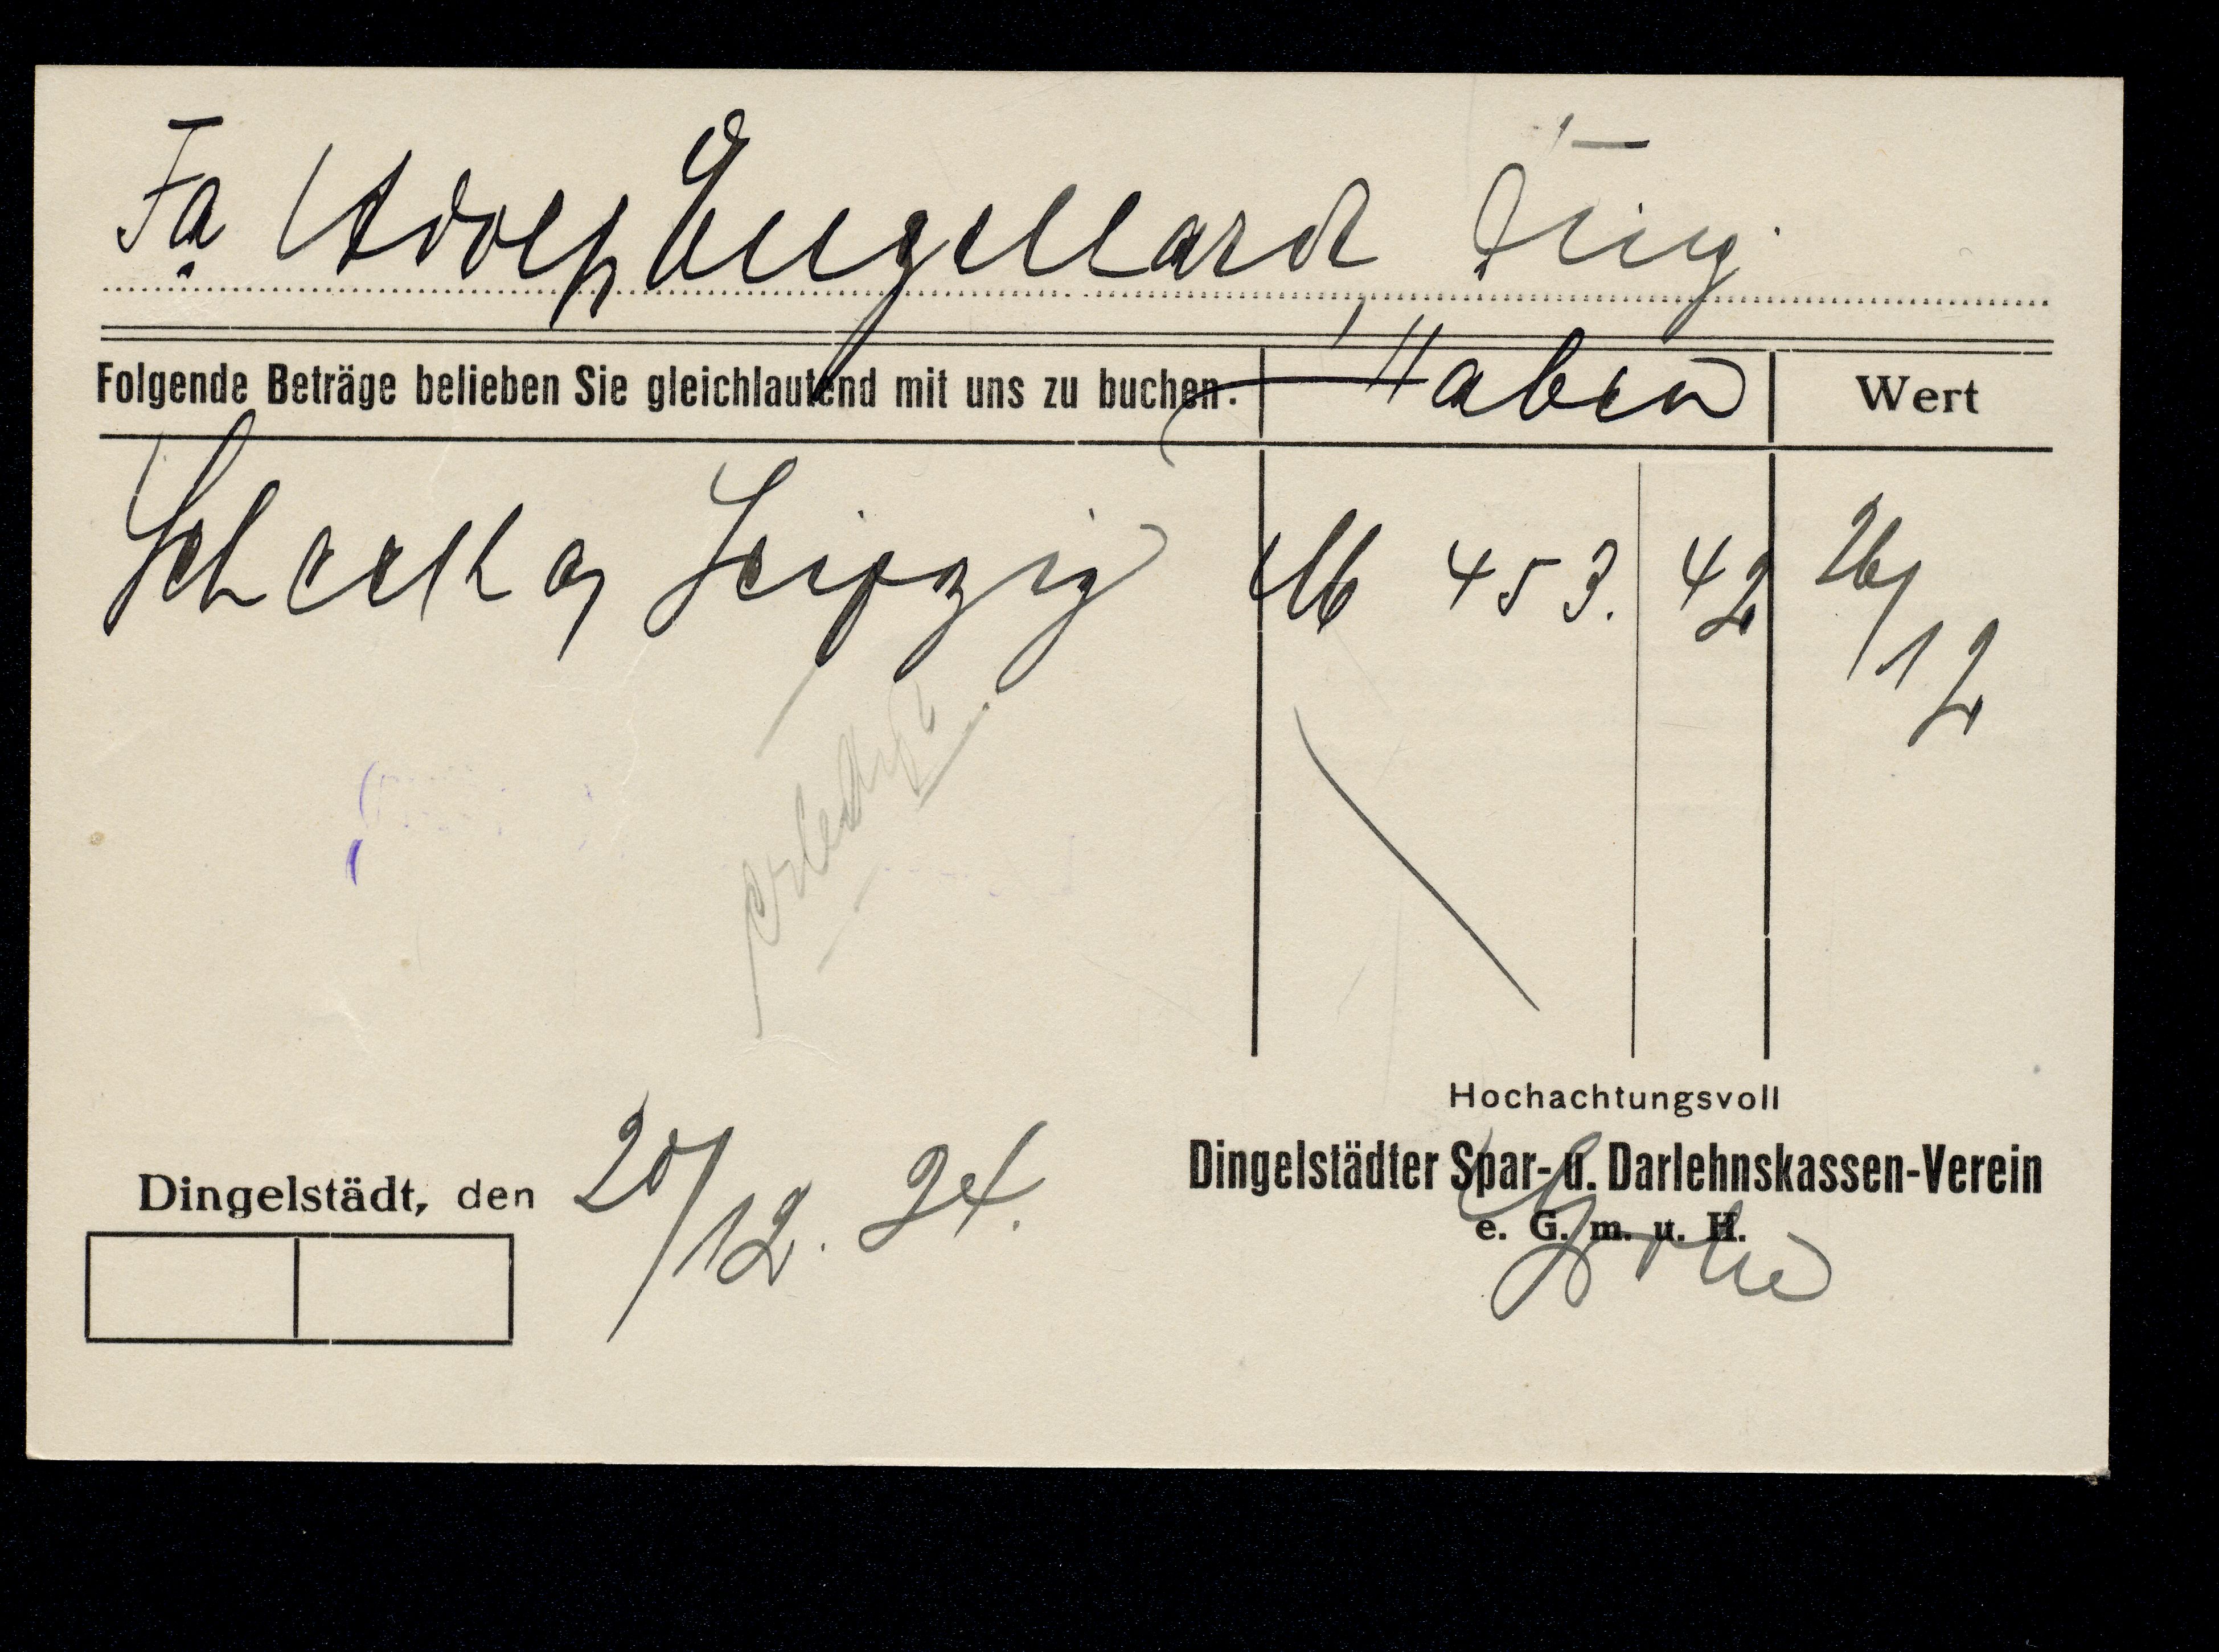 Fa Adolf Engelhard,
Folgende Beträge belieben Sie gleichlautend mit uns zu buchen. Haben Wert
Scheck a/ Leipzig M 453. 42 26/12
erledigt
Hochachtungsvoll
Dingelstädt, den 20/12. 24. Dingelstädter Spar- u. Darlehnskassen-Verein
e. G. m. u. H.